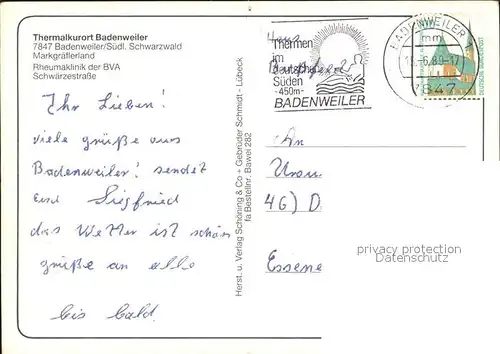 Thermalkurort Badenweiler
7847 Badenweiler/Südl. Schwarzwald
Markgräflerland
Rheumaklinik der BVA
Schwärzestraße
Ihr Lieben!
viele grüße aus
Badenweiler! sendet
Euch Siegfried
das Wetter ist schön
grüße an alle
bis bald.
Herst. u. Verlag Schöning & Co + Gebrüder Schmidt - Lübeck
fa Bestellnr. Bawei 282
Thermen
im
Süden
-450m-
BADENWEILER
BADENWEILER 1
mm
-6.89-17
7847
An
46) D
Essene
privacy protection
Datenschutz